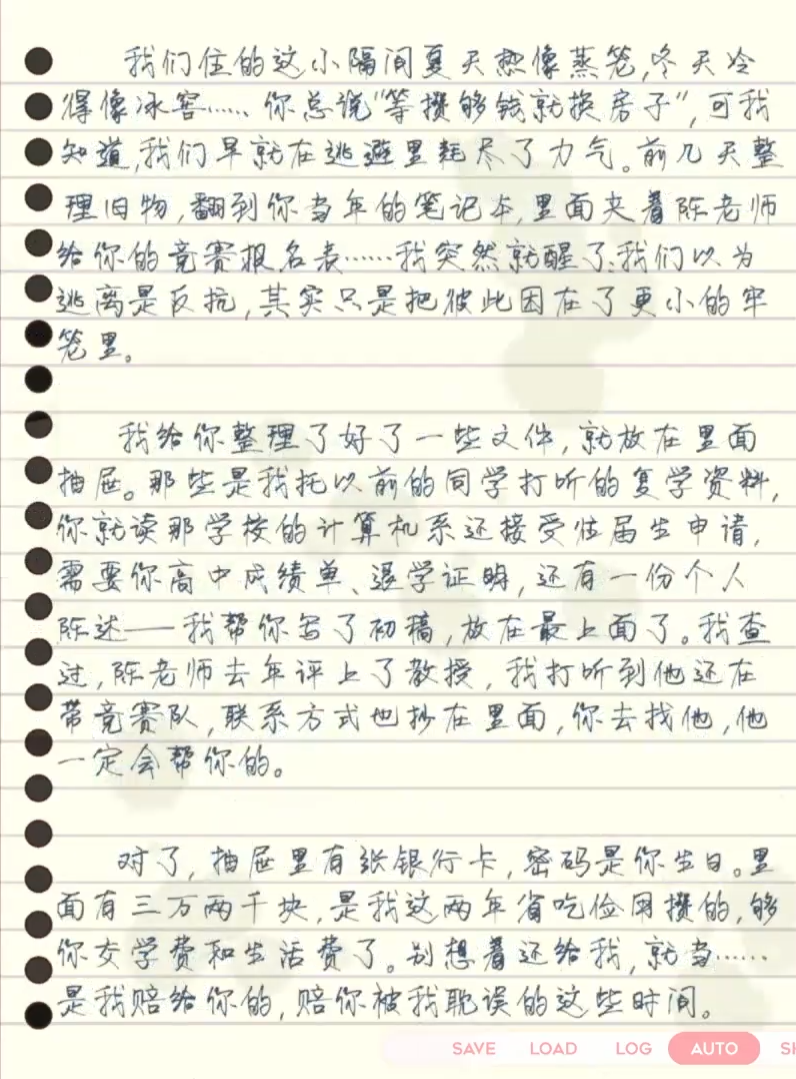 我们住的这小隔间夏天热像蒸笼,冬天冷
得像冰窖……你总说“等攒够钱就换房子”,可我
知道,我们早就在逃避里耗尽了力气。前几天整
理旧物,翻到你当年的笔记本,里面夹着陈老师
给你的竞赛报名表……我突然就醒了:我们以为
逃离是反抗,其实只是把彼此困在了更小的牢
笼里。
我给你整理了好了一些文件,就放在里面
抽屉。那些是我托以前的同学打听的复学资料,
你就读那学校的计算机系还接受往届生申请,
需要你高中成绩单、退学证明,还有一份个人
陈述——我帮你写了初稿,放在最上面了。我查
过,陈老师去年评上了教授,我打听到他还在
带竞赛队,联系方式也抄在里面,你去找他,他
一定会帮你的。
对了,抽屉里有张银行卡,密码是你生日。里
面有三万两千块,是我这两年省吃俭用攒的,够
你交学费和生活费了。别想着还给我,就当……
是我赔给你的,赔你被我耽误的这些时间。
SAVE LOAD LOG AUTO